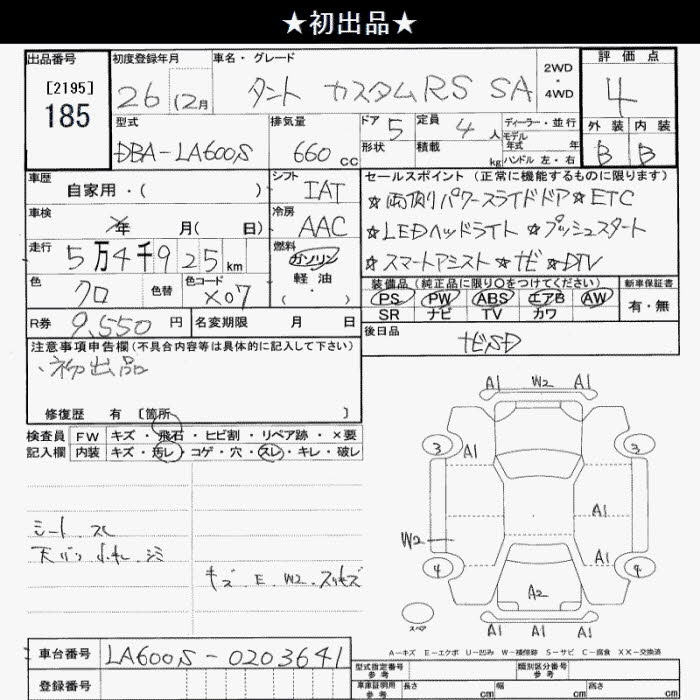 ★初出品★
出品番号
[2195]
185
初度登録年月
26 12月
車名・グレード
タント カスタムRS SA
2WD
・
4WD
評価点
4
外装 内装
B B
型式
DBA-LA600S
排気量
660 cc
ドア 5
形状
定員 4 人
積載 kg
ディーラー・並行
モデル
年式 年
ハンドル 左・右
車歴
自家用・( )
シフト
IAT
車検
年 月( 日)
冷房
AAC
走行
5万4千925km
燃料
ガソリン
軽油
( ・ )
色
クロ
色替
色コード
X07
R券 9,550円
名変期限 月 日
セールスポイント(正常に機能するものに限ります)
☆両側パワースライドドア☆ETC
☆LEDヘッドライト ☆プッシュスタート
☆スマートアシスト ☆ナビ ☆DTV
装備品(純正品に限り○をつけてください)
新車保証書
PS PW ABS エアB AW
有・無
SR ナビ TV カワ
後日品
ナビSD
注意事項申告欄(不具合内容等は具体的に記入して下さい)
・初出品
修復歴 有 [箇所 ]
検査員
記入欄
FW キズ・飛石・ヒビ割・リペア跡・×要
内装 キズ・汚レ・コゲ・穴・スレ・キレ・破レ
シート スレ
天バリ ヨゴレ シミ
キズ.E.W2.スリキズ
A1 W2 A1
3 A1 3
A1
W2
A1
4 4
A2
スペア
A1 A1 A1
A-キズ E-エクボ U-凹み W-補修跡 S-サビ C-腐食 XX-交換済
車台番号
LA600S-0203641
登録番号
型式指定番号
参考
類別区分番号
参考
車庫証明用
参考
長さ cm
幅 cm
高さ cm